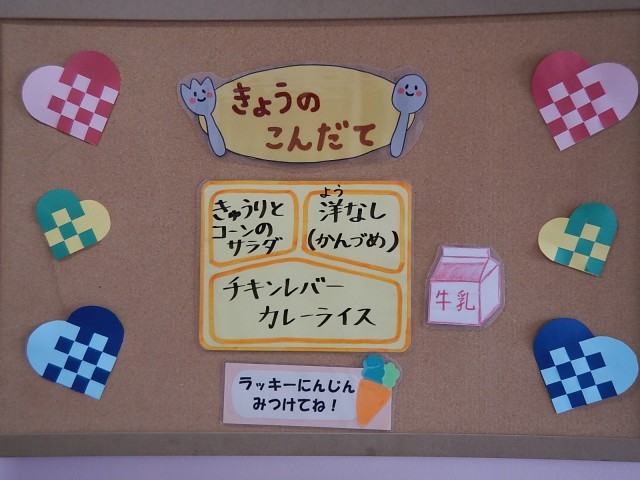 きょうの
こんだて
きゅうりと
コーンの
サラダ
よう
洋なし
(かんづめ)
チキンレバー
カレーライス
牛乳
ラッキーにんじん
みつけてね！